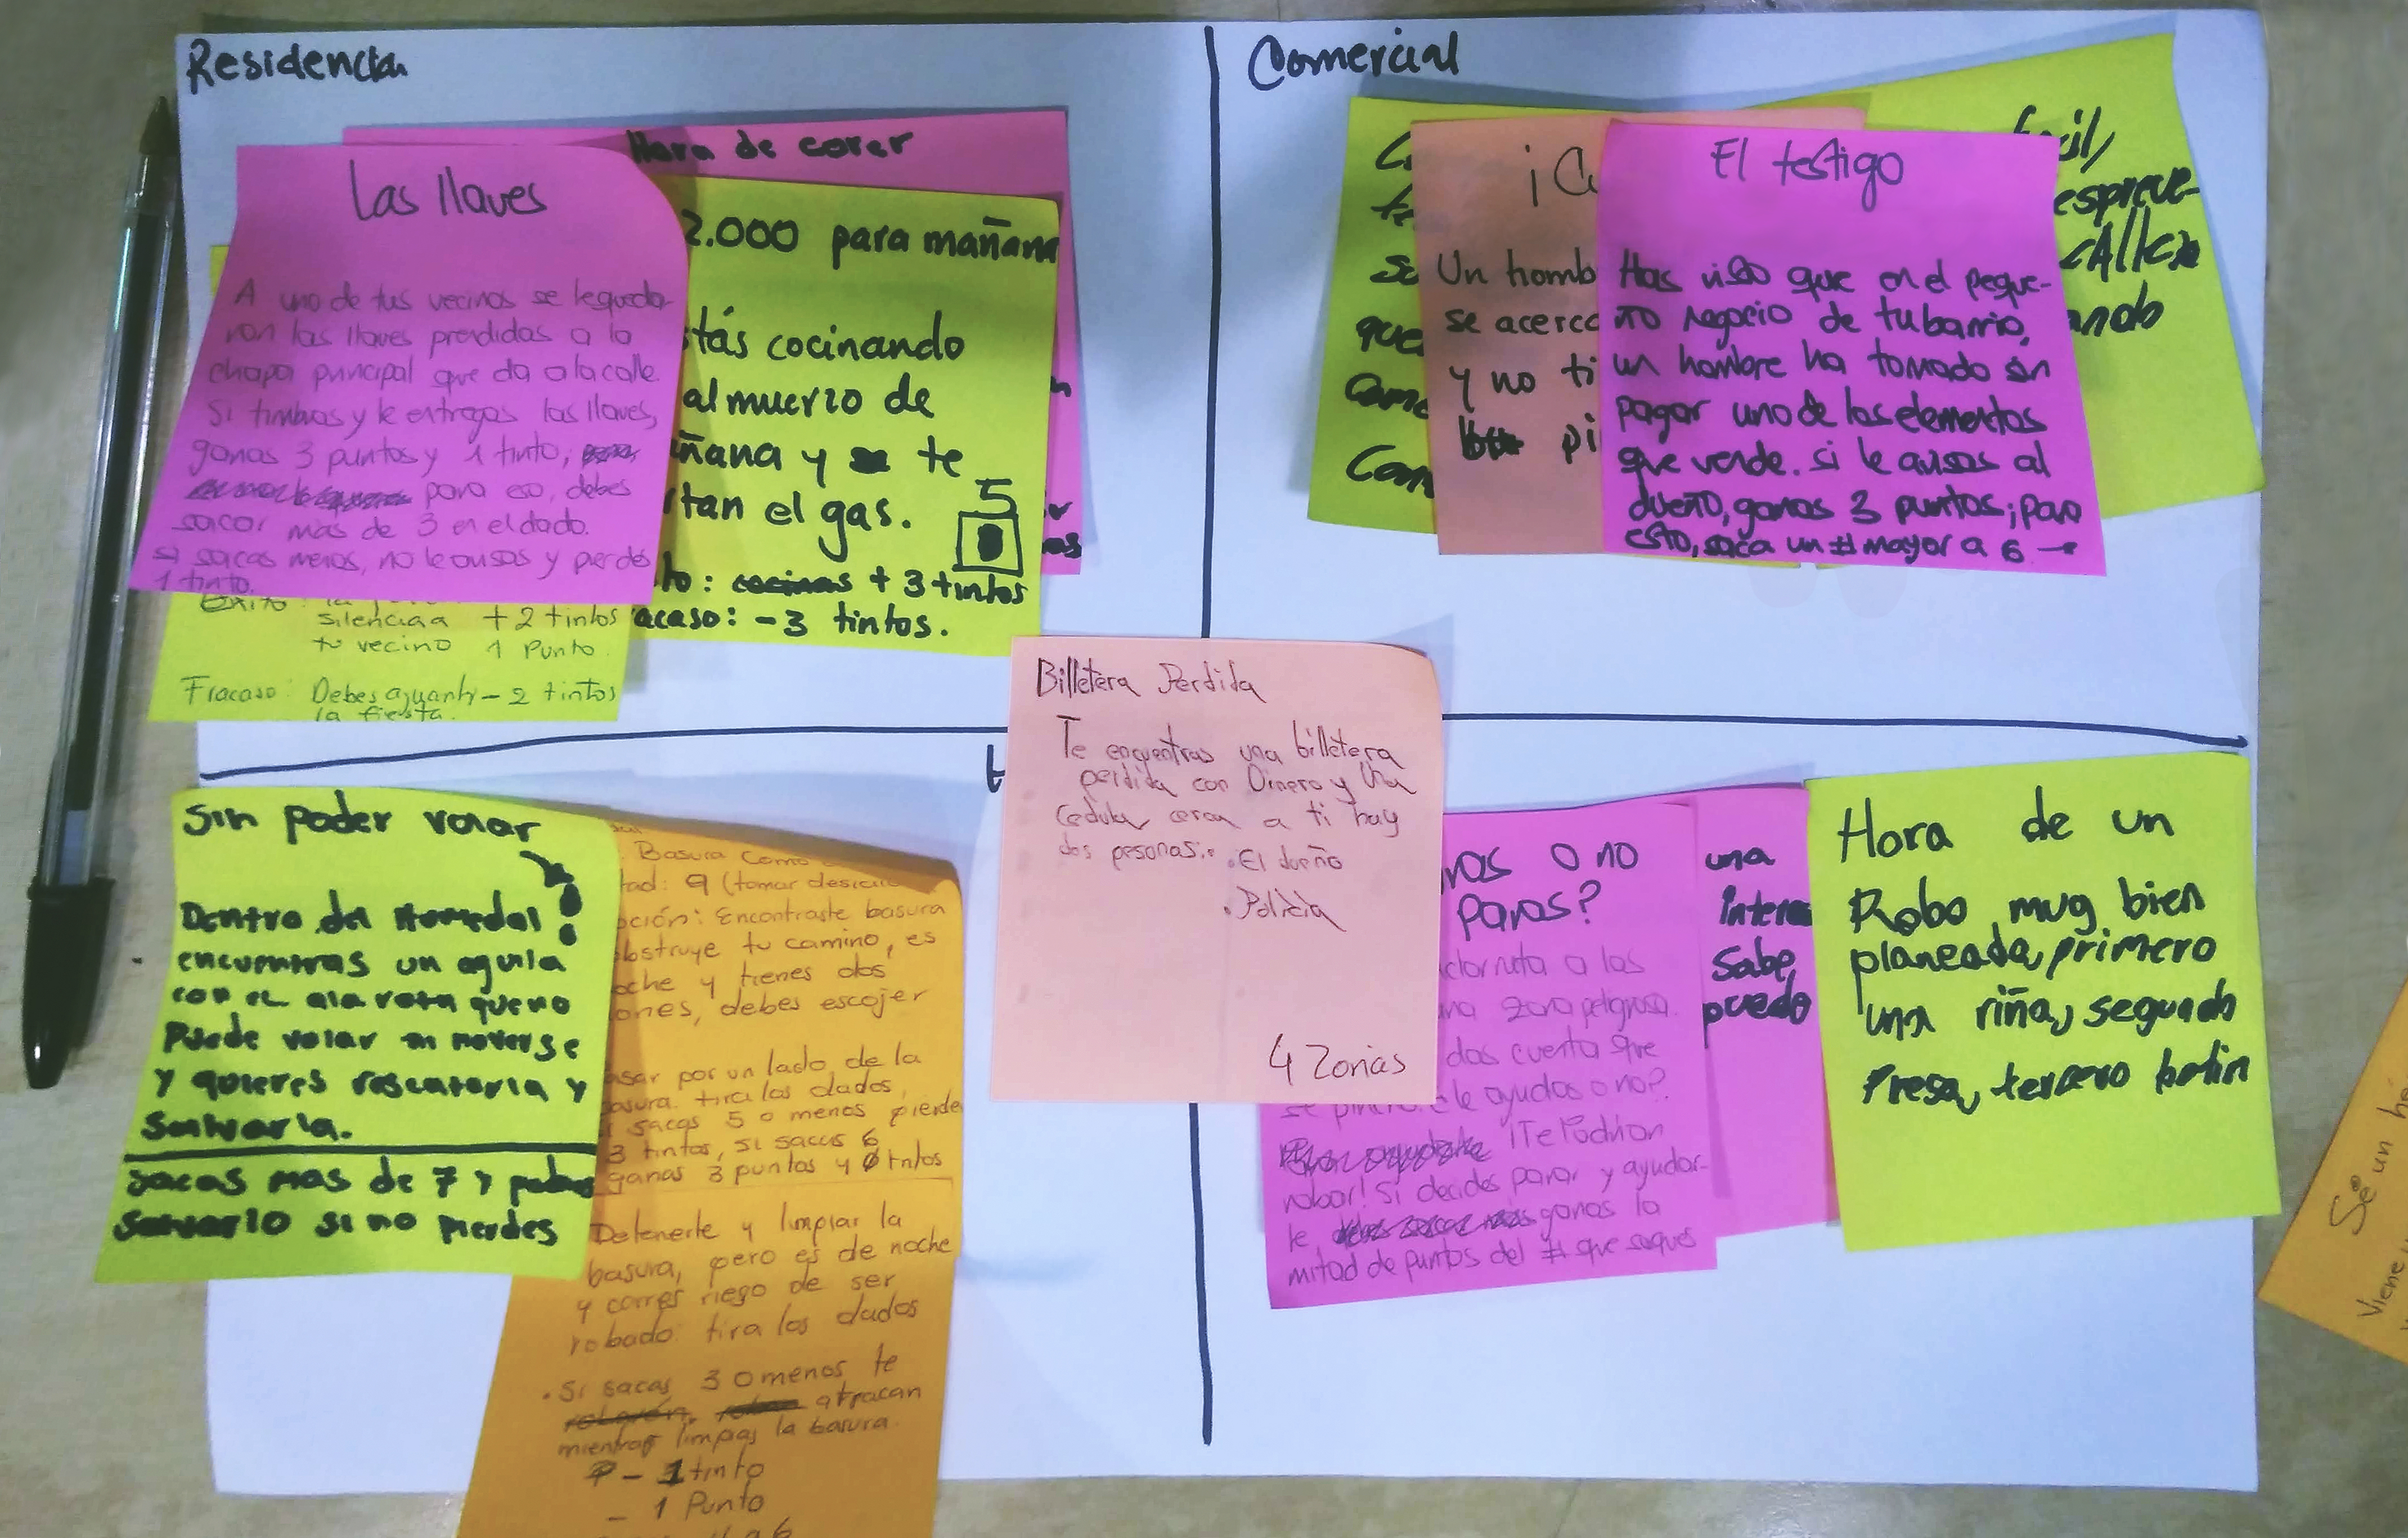 Residencia
Hora de corer
Las llaves
A uno de tus vecinos se le queda-
ron las llaves prendidas a la
chapa principal que da a la calle.
Si timbras y le entregas las llaves,
ganas 3 puntos y 1 tinto,
para eso, debes
sacar mas de 3 en el dado.
si sacas menos, no le avisas y pierdes
1 tinto.
Exito:
silencia a + 2 tintos
tu vecino 1 Punto
Fracaso: Debes aguantr - 2 tintos
la fiesta.
2.000 para mañana
tás cocinando
almuerzo de
ñana y te
rtan el gas.
5
to: + 3 tintos
acaso: - 3 tintos.
Comercial
¡C
Un homb
se acerca
y no ti
pi
que
Come
Com
El testigo
Has visto que en el peque-
ño negocio de tu barrio,
un hombre ha tomado sin
pagar uno de los elementos
que vende. si le avisas al
dueño, ganas 3 puntos; para
esto, saca un # mayor a 6 →
facil,
espreve-
cAlle
ando
Billetera Perdida
Te encuentras una billetera
perdida con Dinero y Una
cedula cerca a ti hay
dos pesonas..
• El dueño
• Policia
4 Zonas
Sin poder volar
Dentro del Humedal
encuentras un aguila
con el ala rota que no
Puede volar ni moverse
y quieres rescatarla y
Salvarla.
Sacas mas de 7 y puedes
Salvarlo si no pierdes
Basura como
tad: 9 (tomar desicio
pción: Encontraste basura
obstruye tu camino, es
oche y tienes dos
iones, debes escojer
asar por un lado de la
basura. tira los dados,
i sacas 5 o menos pierde
3 tintos, si sacas 6
ganas 3 puntos y tntos
Detenerte y limpiar la
basura, pero es de noche
y corres riego de ser
robado: tira los dados
• Si sacas 3 o menos te
atracan
mientras limpias la basura.
- 1 tinto
- 1 Punto
ras o no
paras?
cloruta a las
una zona peligrosa.
das cuenta que
se le ayudas o no?
¡Te Podrian
robar! Si decides parar y ayudar-
le ganas la
mitad de puntos del # que saques
una
interes
Sabe,
puedo
Hora de un
Robo muy bien
planeada, primero
una riña, segundo
Presa, tercero botin
Se un h
Viene